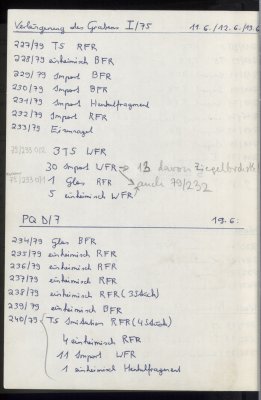 Verlängerung des Grabens I/75 11.6./12.6./13.6
227/79 TS RFR
228/79 einheimisch BFR
229/79 Import BFR
230/79 Import BFR
231/79 Import Henkelfragment
232/79 Import RFR
233/79 Eisennagel
79/233 01/2 3 TS WFR
30 Import WFR → 13 davon
75/233 01/1 1 Glas RFR auch 79/232
5 einheimisch WFR
PQ D/7 19.6.
234/79 Glas BFR
235/79 einheimisch RFR
236/79 einheimisch RFR
237/79 einheimisch RFR
238/79 einheimisch RFR (3 Stück)
239/79 einheimisch BFR
240/79 TS Imitation RFR (4 Stück)
4 einheimisch RFR
11 Import WFR
1 einheimisch Henkelfragment